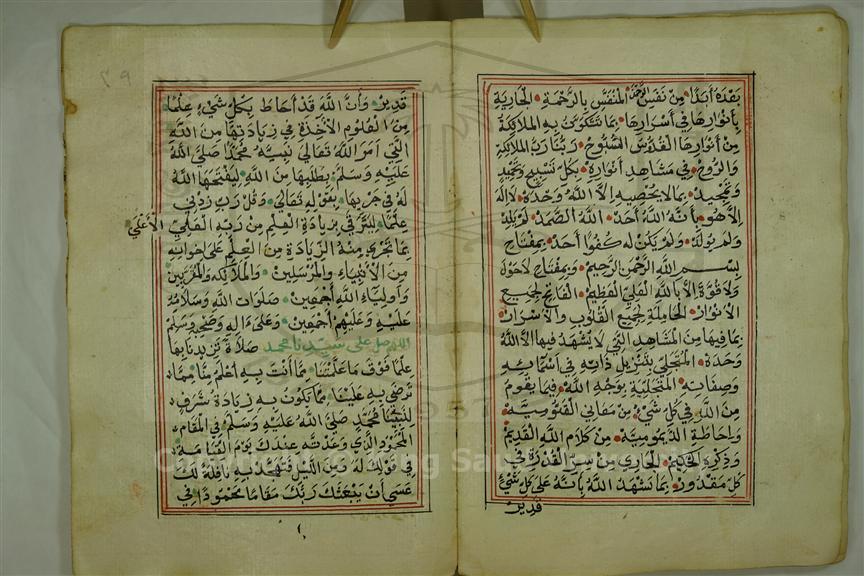 بعده أبدا من نفس الرحمة المنفس بالرحمة الجارية
بأنوارها في أسرارها بما تتكون به الملائكة
من أنوارها القدوس السبوح ربنا رب الملائكة
والروح في مشاهد أنواره بكل تسبيح وتحميد
وتمجيد بما لا يحصيه إلا الله وحده لا إله
إلا هو بأنه الله أحد الله الصمد لم يلد
ولم يولد ولم يكن له كفوا أحد بمفتاح
بسم الله الرحمن الرحيم وبمفتاح لا حول
ولا قوة إلا بالله العلي العظيم الفاتح لجميع
الأنوار الحاملة لجميع القلوب والأسرار
بما فيها من المشاهد التي لا يشهد فيها إلا الله
وحده المتجلي بتنزيل ذاته في أسمائه
وصفاته المتجلية بوجه الله فيما يقوم
من الله في كل شيء من معاني القدوسية
وإحاطة الديمومية من كلام الله القديم
وذكره الحكيم الجاري من سر القدرة في
كل مقدور بما تشهد الله بأنه على كل شيء
قدير
قدير وأن الله قد أحاط بكل شيء علما
من العلوم الآخذة في زيادتها من الله
التي أمر الله تعالى نبيه محمدا صلى الله
عليه وسلم بطلبها من الله ليفتحها الله
له في حزبها بقوله تعالى وقل رب زدني
علما ليترقى بزيادة العلم من ربه العلي الأعلى
بما تجري منه الزيادة من العلم على إخوانه
من الأنبياء والمرسلين والملائكة والمقربين
وأولياء الله أجمعين صلوات الله وسلامه
عليه وعليهم أجمعين وعلى آله وصحبه وسلم
اللهم صل على سيدنا محمد صلاة تزيدنا بها
علما فوق ما علمتنا مما أنت به أعلم منا مما
ترضى به علينا مما يكون به زيادة شرف
لنبينا محمد صلى الله عليه وسلم في المقام
المحمود الذي وعدته عندك يوم القيامة
في قولك له ومن الليل فتهجد به نافلة لك
عسى أن يبعثك ربك مقاما محمودا في